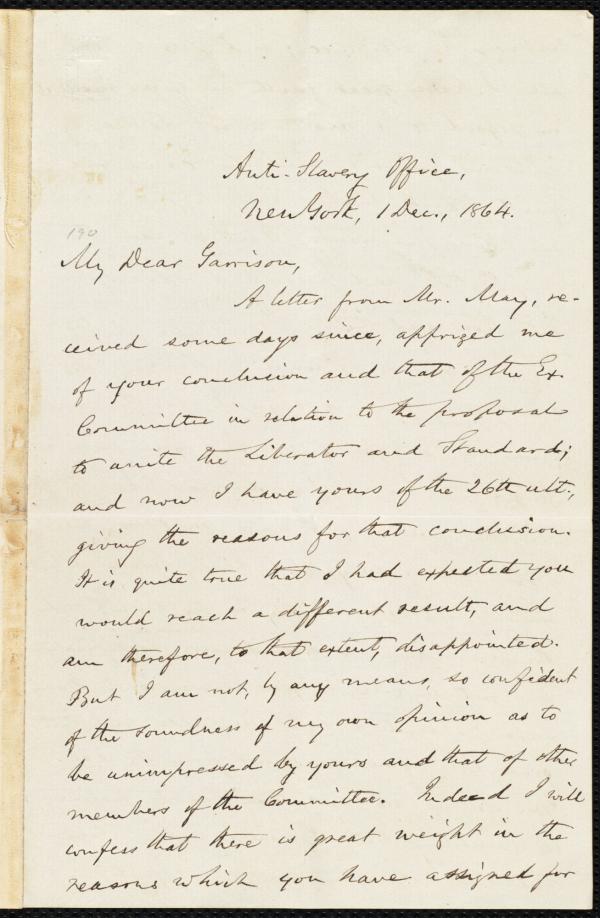 Anti-Slavery Office,
New York, 1 Dec., 1864.
190
My Dear Garrison,
A letter from Mr. May, re-
ceived some days since, apprized me
of your conclusion and that of the Ex.
Committee in relation to the proposal
to unite the Liberator and Standard;
and now I have yours of the 26th ult.,
giving the reasons for that conclusion.
It is quite true that I had expected you
would reach a different result, and
am therefore, to that extent, disappointed.
But I am not, by any means, so confident
of the soundness of my own opinion as to
be unimpressed by yours and that of other
members of the Committee. Indeed I will
confess that there is great weight in the
reasons which you have assigned for